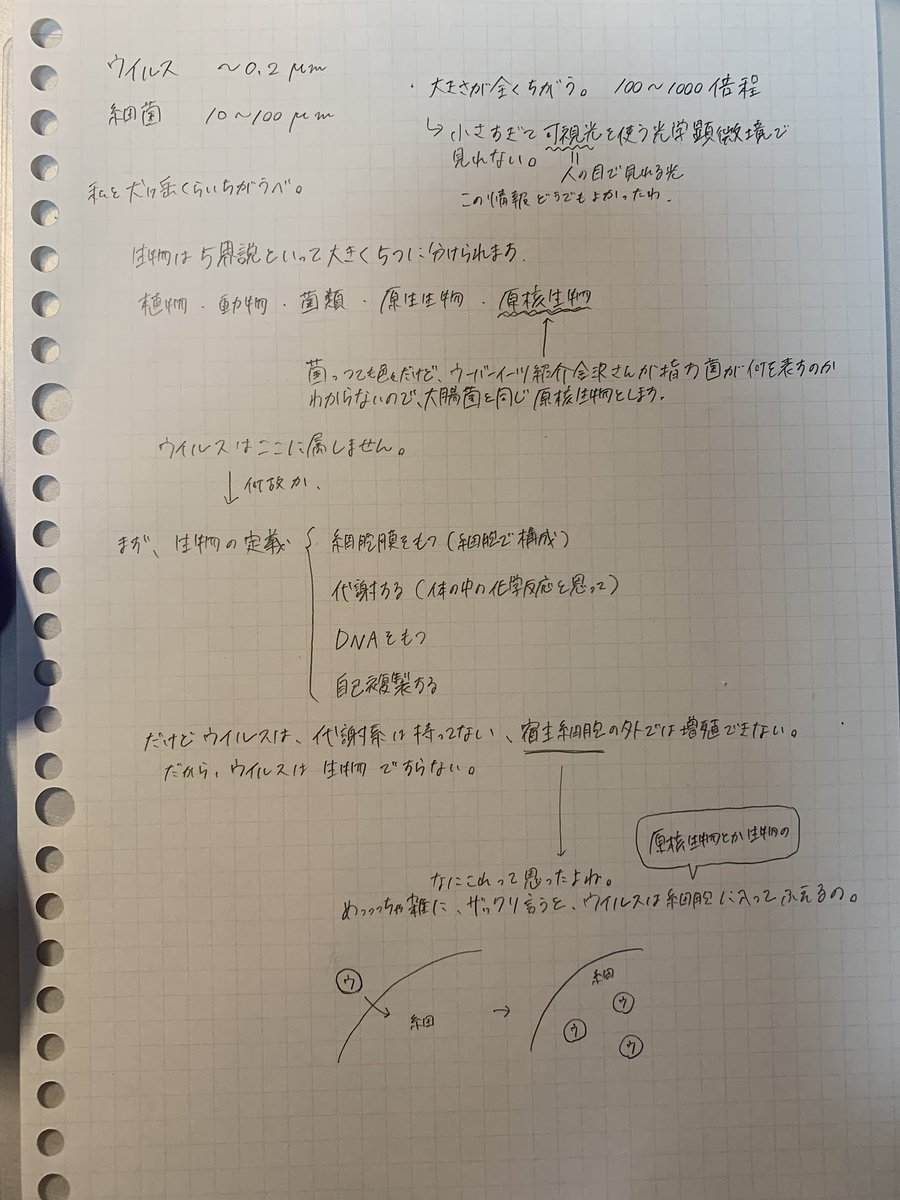 ウイルス ~0.2 μm
細菌 10~100 μm
・大きさが全くちがう。 100~1000倍程
↳ 小さすぎて可視光を使う光学顕微境で
見れない。 = 人の目で見れる光
この情報どうでもよかったわ.
私と犬ヶ岳くらいちがうべ。
生物は5界説といって大きく5つに分けられます.
植物・動物・菌類・原生生物・原核生物
菌っつても色々だけど、ウーバーイーツ紹介金沢さんが指す菌が何を表すのか
わからないので、大腸菌と同じ原核生物とします.
ウイルスはここに属しません。
↓ 何故か.
まず、生物の定義
細胞膜をもつ(細胞で構成)
代謝する(体の中の化学反応を思って)
DNAをもつ
自己複製する
だけどウイルスは、代謝系は持ってない、宿主細胞の外では増殖できない。
だから、ウイルスは生物ですらない。
原核生物とか生物の
なにこれって思ったよね。
めっっっちゃ雑に、ザックリ言うと、ウイルスは細胞に入ってふえるの。
ウ 細 → 細 ウ ウ ウ